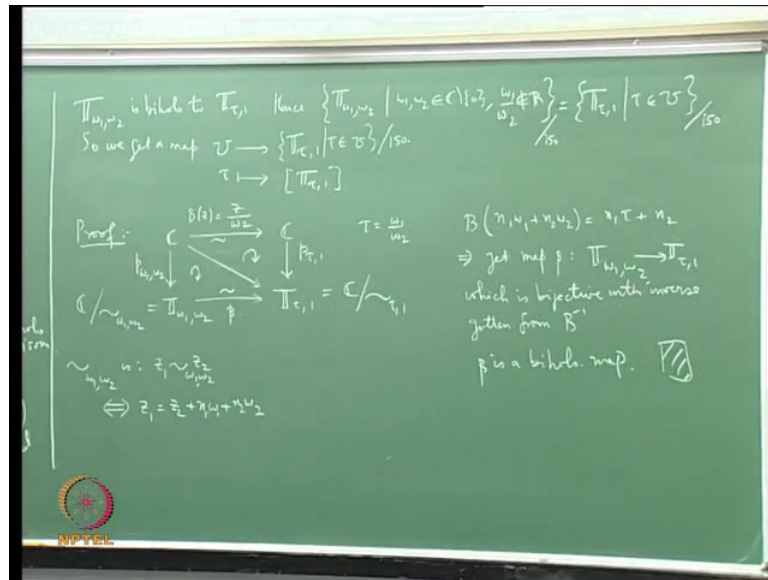 𝕋_{ω₁,ω₂} is biholo to 𝕋_{τ,1} Hence {𝕋_{ω₁,ω₂} | ω₁,ω₂ ∈ ℂ∖{0}, ω₁/ω₂ ∉ ℝ}/iso = {𝕋_{τ,1} | τ ∈ 𝒰}/iso
So we get a map 𝒰 → {𝕋_{τ,1} | τ ∈ 𝒰}/iso.
τ ↦ [𝕋_{τ,1}]
Proof:
B(z) = z/ω₂
ℂ →~ ℂ
τ = ω₁/ω₂
p_{ω₁,ω₂} ↓ ↓ p_{τ,1}
ℂ/∼_{ω₁,ω₂} = 𝕋_{ω₁,ω₂} →~ 𝕋_{τ,1} = ℂ/∼_{τ,1}
β
∼_{ω₁,ω₂} is: z₁ ∼_{ω₁,ω₂} z₂
⟺ z₁ = z₂ + n₁ω₁ + n₂ω₂
B(n₁ω₁ + n₂ω₂) = n₁τ + n₂
⇒ get map β: 𝕋_{ω₁,ω₂} → 𝕋_{τ,1}
which is bijective with inverse
gotten from B⁻¹
β is a biholo. map.
NPTEL